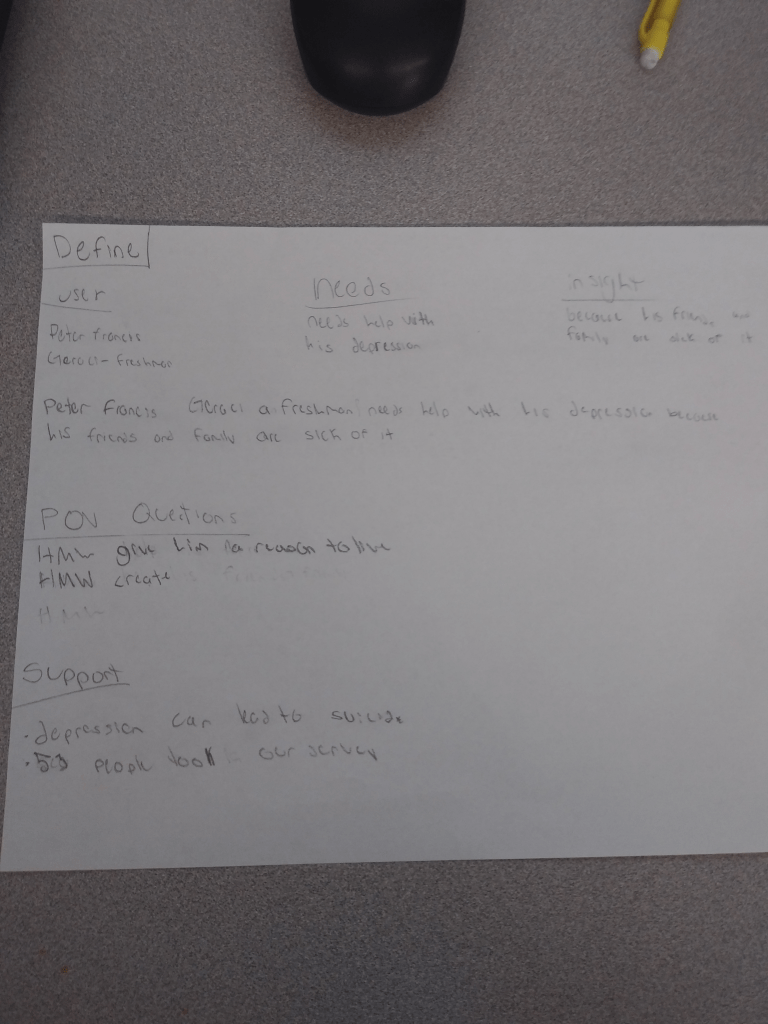 Define
User
needs
insight
Peter Francis
Geraci - freshman
needs help with
his depression
because his friends and
family are sick of it
Peter Francis Geraci a freshman needs help with his depression because
his friends and family are sick of it
POV Questions
HMW give him a reason to live
HMW create
HMW
Support
· depression can lead to suicide
· 53 people took our survey